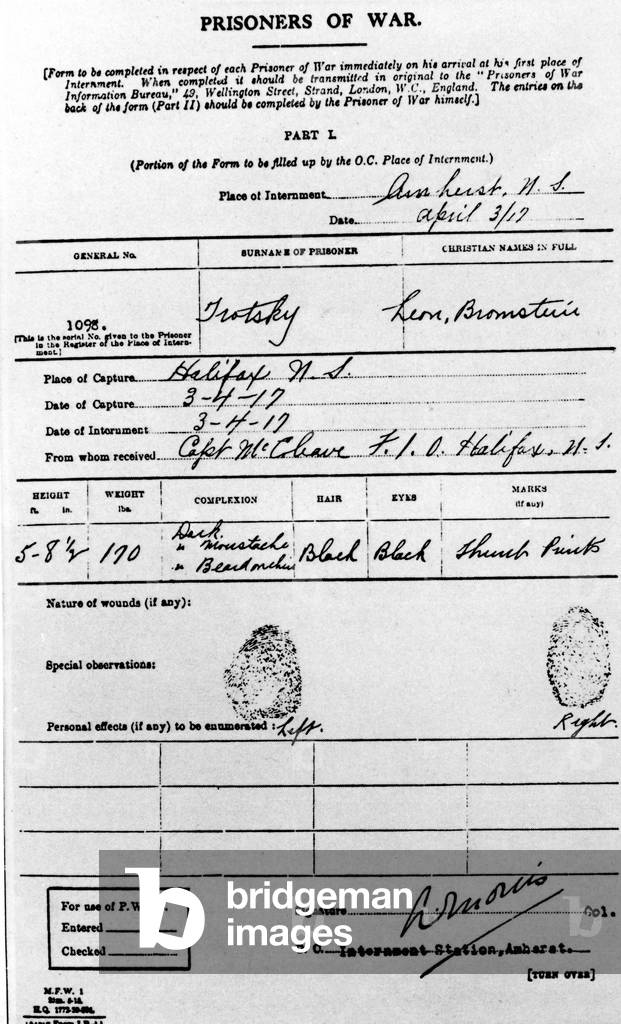 PRISONERS OF WAR.
[Form to be completed in respect of each Prisoner of War immediately on his arrival at his first place of
Internment. When completed it should be transmitted in original to the "Prisoners of War
Information Bureau," 49, Wellington Street, Strand, London, W.C., England. The entries on the
back of the form (Part II) should be completed by the Prisoner of War himself.]
PART I.
(Portion of the Form to be filled up by the O.C. Place of Internment.)
Place of Internment Amherst, N.S.
Date April 3/17
GENERAL No. SURNAME OF PRISONER CHRISTIAN NAMES IN FULL
1098. Trotsky Leon, Bromstein
[This is the serial No. given to the Prisoner
in the Register of the Place of Intern-
ment.]
Place of Capture Halifax N.S.
Date of Capture 3-4-17
Date of Internment 3-4-17
From whom received Capt McCleave F.I.O. Halifax, N.S.
HEIGHT WEIGHT COMPLEXION HAIR EYES MARKS
ft. in. lbs. (if any)
5-8½ 170 Dark Black Black Thumb Prints
" Moustache
" Beard on chin
Nature of wounds (if any):
Special observations:
Personal effects (if any) to be enumerated: Left. Right.
For use of P.W.
Entered
Checked
Col.
Internment Station, Amherst.
[TURN OVER]
M.F.W. 1
b bridgeman
images